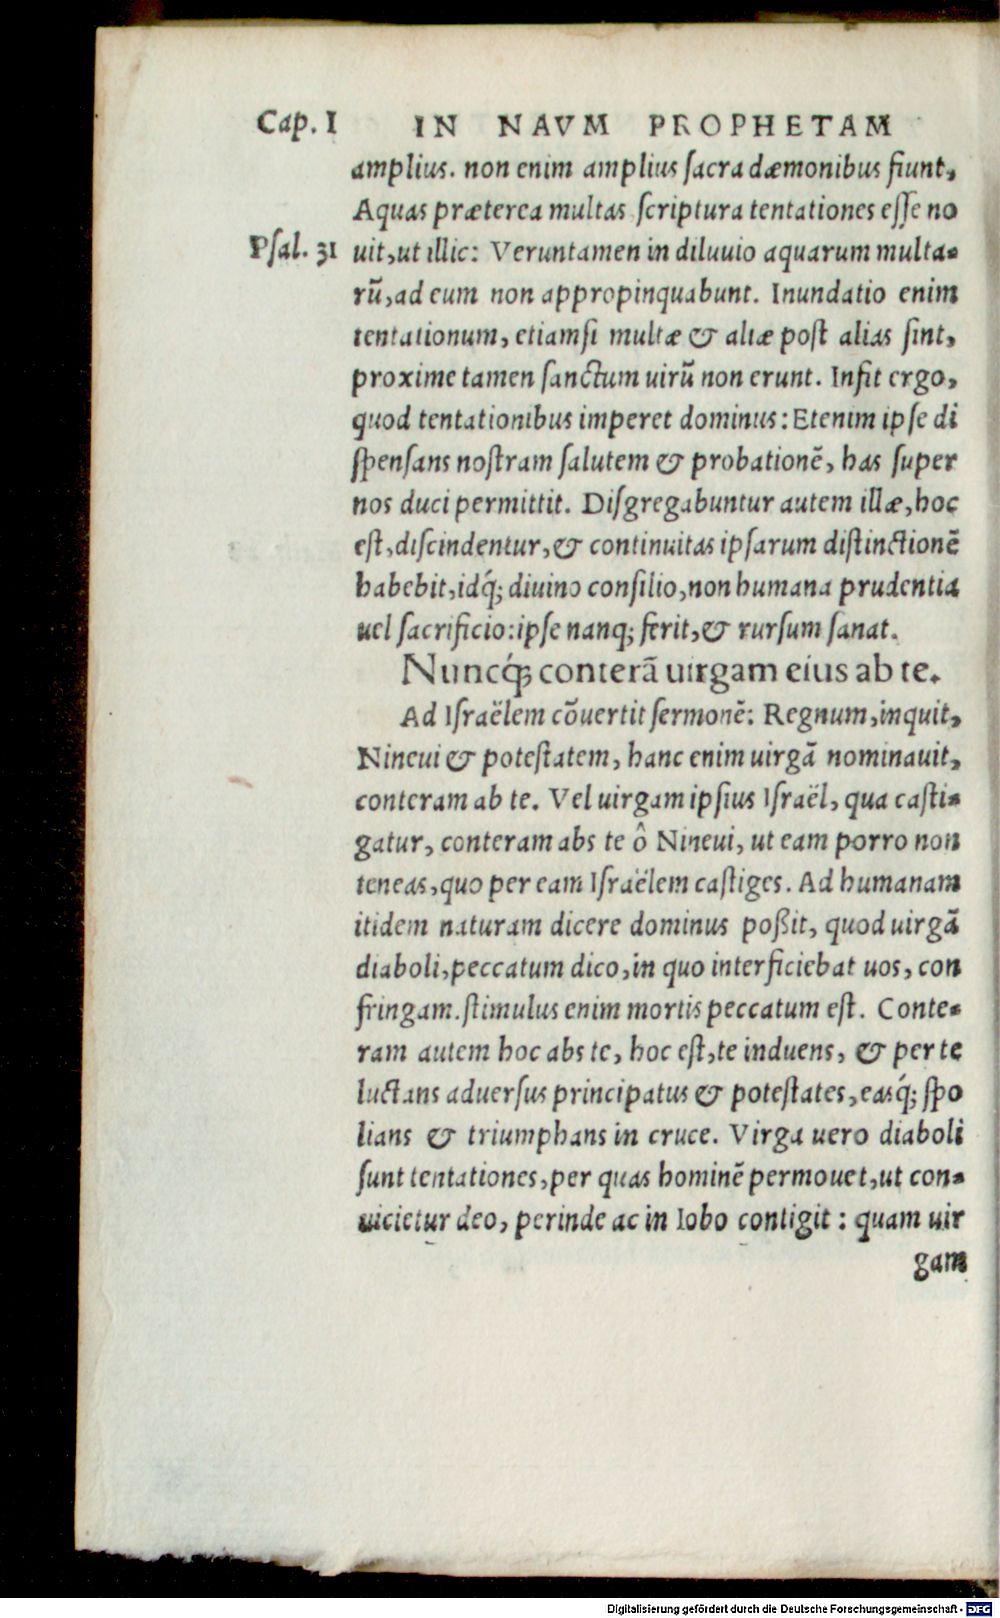 Cap. I IN NAVM PROPHETAM
amplius. non enim amplius ſacra dæmonibus fiunt,
Aquas præterea multas ſcriptura tentationes eſſe no
Pſal. 31 uit, ut illic: Veruntamen in diluuio aquarum multa-
rũ, ad eum non appropinquabunt. Inundatio enim
tentationum, etiamſi multæ & aliæ poſt alias ſint,
proxime tamen ſanctum uirũ non erunt. Infit ergo,
quod tentationibus imperet dominus: Etenim ipſe di
ſpenſans noſtram ſalutem & probationẽ, has ſuper
nos duci permittit. Diſgregabuntur autem illæ, hoc
eſt, diſcindentur, & continuitas ipſarum diſtinctionẽ
habebit, idq́; diuino conſilio, non humana prudentia
uel ſacrificio: ipſe nanq; ferit, & rurſum ſanat.
Nuncq́; conterã uirgam eius ab te.
Ad Iſraëlem cõuertit ſermonẽ: Regnum, inquit,
Nineui & poteſtatem, hanc enim uirgã nominauit,
conteram ab te. Vel uirgam ipſius Iſraël, qua caſti-
gatur, conteram abs te ô Nineui, ut eam porro non
teneas, quo per eam Iſraëlem caſtiges. Ad humanam
itidem naturam dicere dominus poßit, quod uirgã
diaboli, peccatum dico, in quo interficiebat uos, con
fringam. ſtimulus enim mortis peccatum eſt. Conte-
ram autem hoc abs te, hoc eſt, te induens, & per te
luctans aduerſus principatus & poteſtates, easq́; ſpo
lians & triumphans in cruce. Virga uero diaboli
ſunt tentationes, per quas hominẽ permouet, ut con-
uicietur deo, perinde ac in Iobo contigit: quam uir
gam
Digitalisierung gefördert durch die Deutsche Forschungsgemeinschaft - DFG